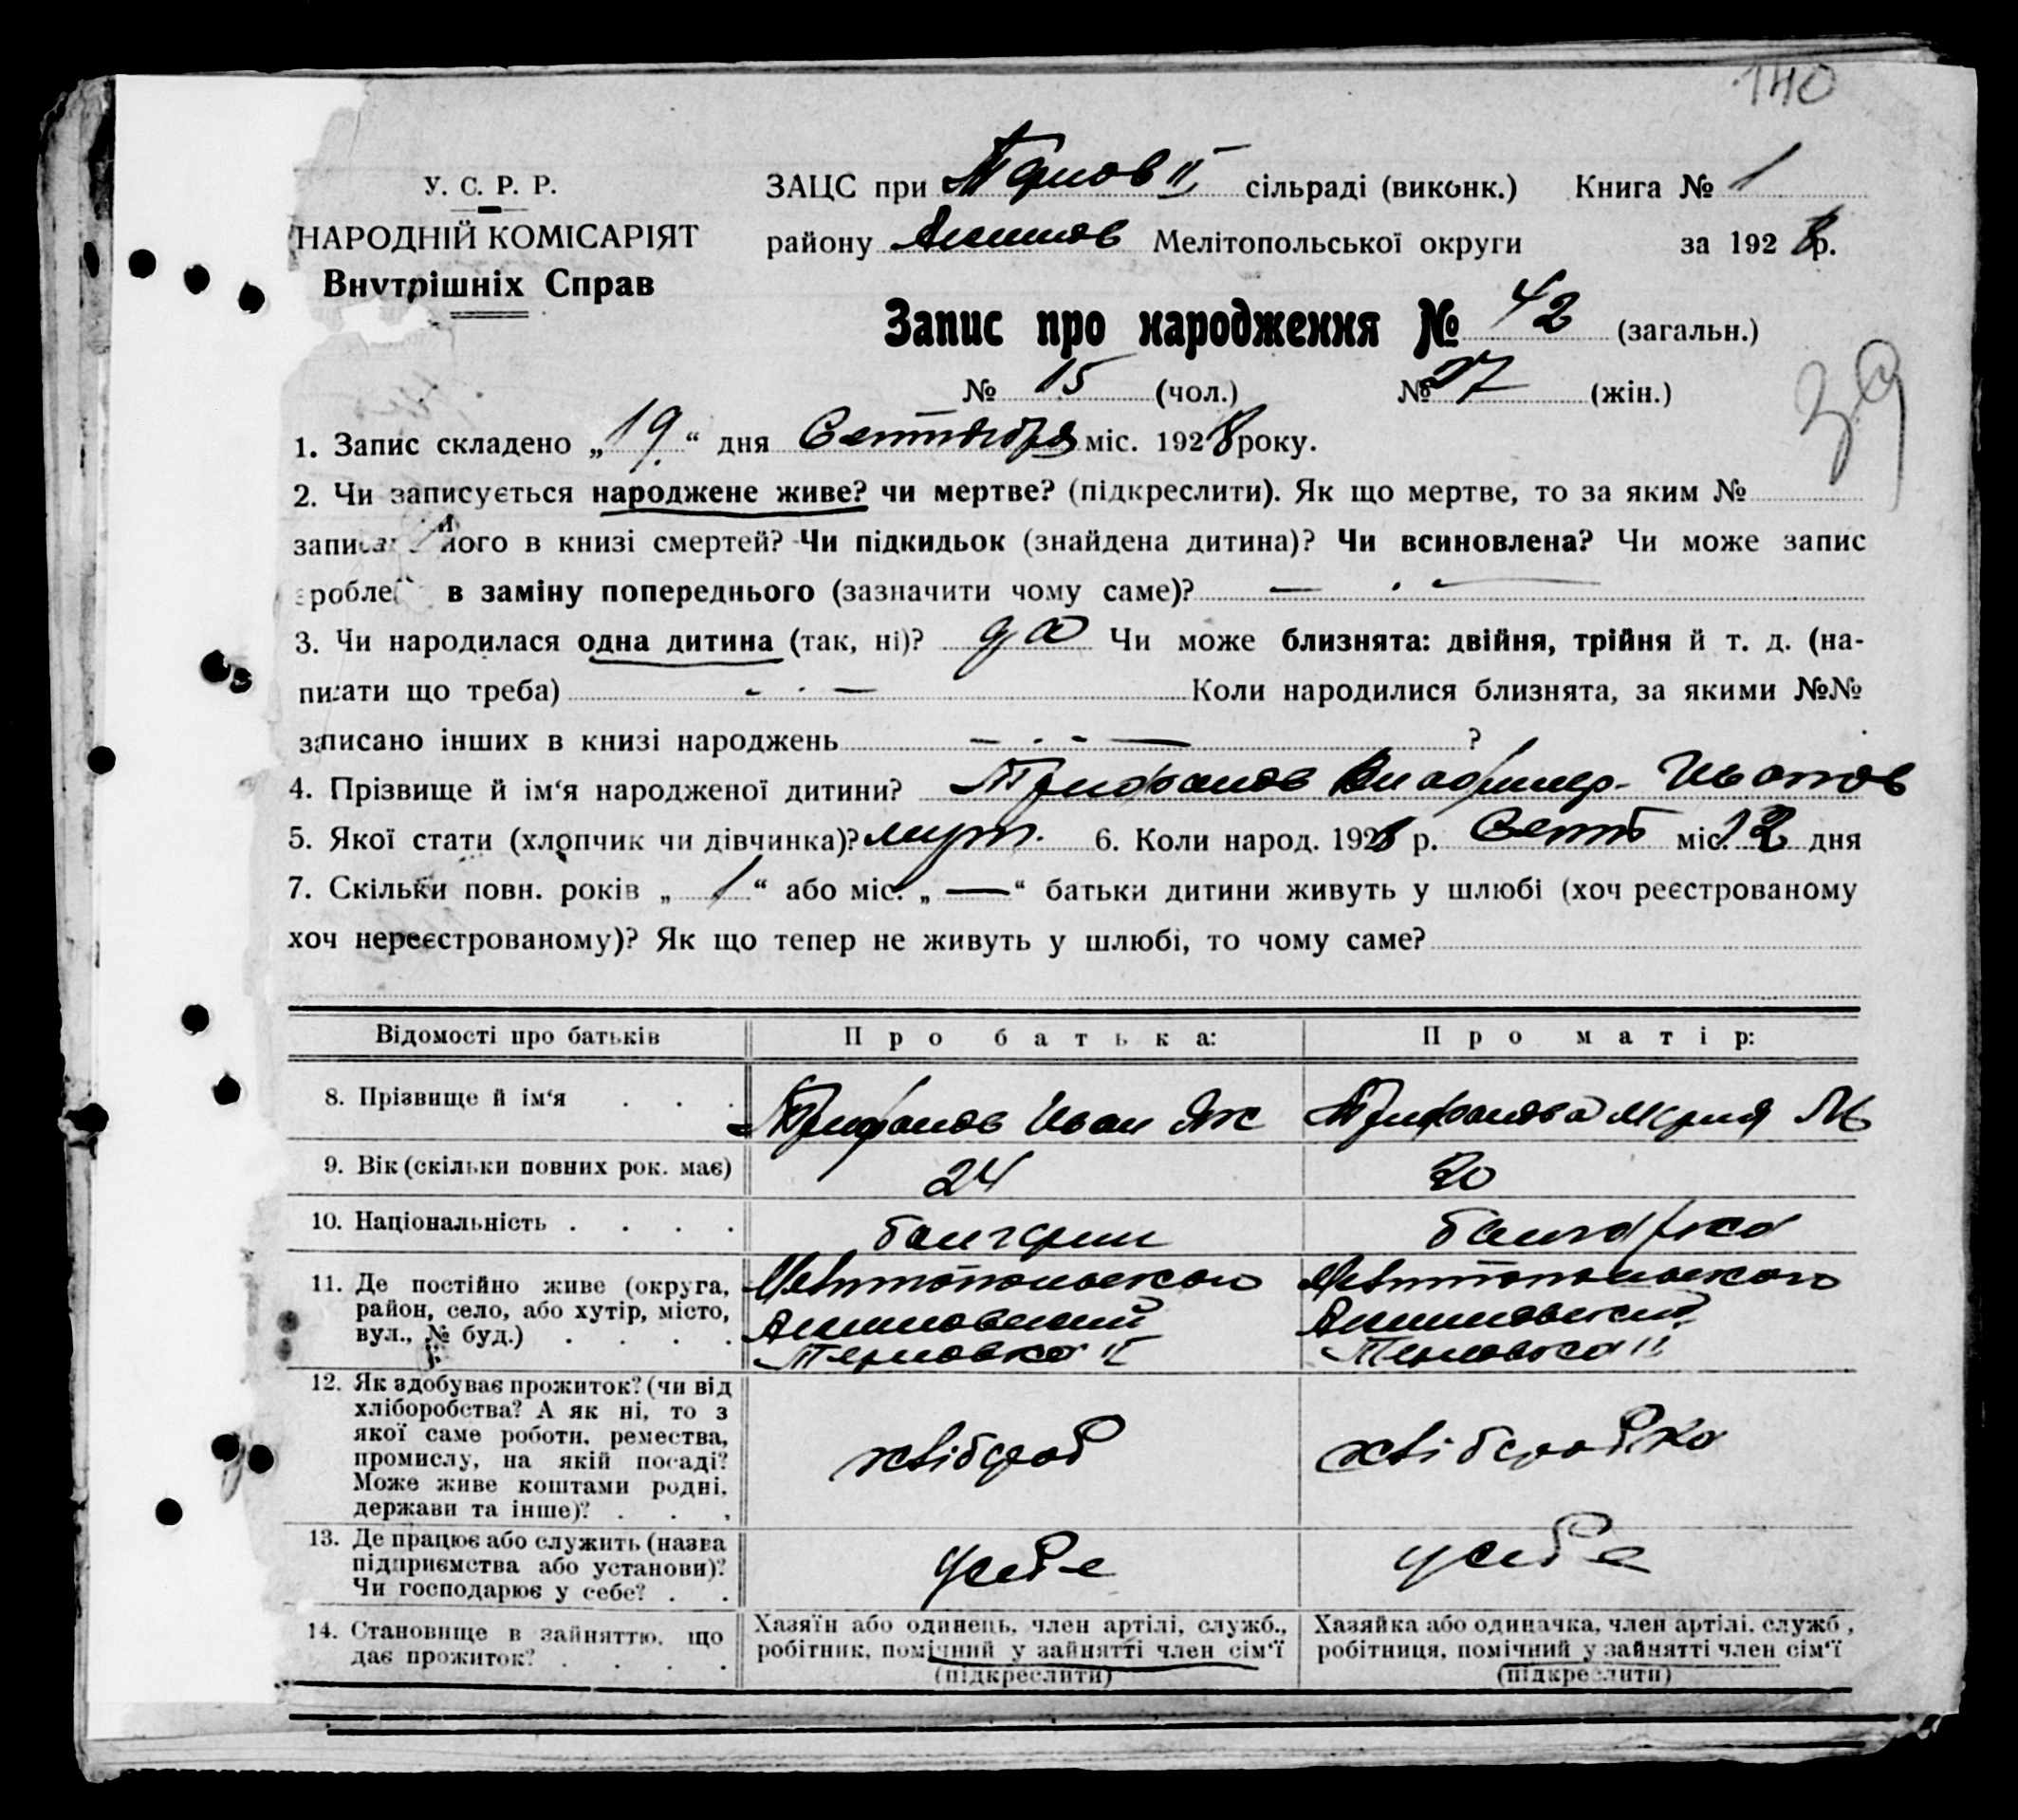 140
У. С. Р. Р.
НАРОДНІЙ КОМІСАРІЯТ
Внутрішніх Справ
ЗАЦС при Тернов II сільраді (виконк.) Книга № 1
району Акимов Мелітопольської округи за 1928 р.
Запис про народження № 42 (загальн.)
№ 15 (чол.) № 27 (жін.)
39
1. Запис складено „19“ дня Сентября міс. 1928 року.
2. Чи записується народжене живе? чи мертве? (підкреслити). Як що мертве, то за яким №
його в книзі смертей? Чи підкидьок (знайдена дитина)? Чи всиновлена? Чи може запис
в заміну попереднього (зазначити чому саме)? —
3. Чи народилася одна дитина (так, ні)? да Чи може близнята: двійня, трійня й т. д. (на-
писати що треба) — Коли народилися близнята, за якими №№
записано інших в книзі народжень — ?
4. Прізвище й ім‘я народженої дитини? Трифонов Владимир Иванов
5. Якої стати (хлопчик чи дівчинка)? муж. 6. Коли народ. 1928 р. Сент міс. 12 дня
7. Скільки повн. років „ 1 “ або міс. „ — “ батьки дитини живуть у шлюбі (хоч реєстрованому
хоч нереєстрованому)? Як що тепер не живуть у шлюбі, то чому саме?
Відомості про батьків Про батька: Про матір:
8. Прізвище й ім‘я . . . Трифонов Иван Трифонова Мария
9. Вік (скільки повних рок. має) 24 20
10. Національність . . . . болгарин болгарка
11. Де постійно живе (округа,
район, село, або хутір, місто,
вул., № буд.) . . . .
Мелитопольского
Акимовский
Терновка II
Мелитопольского
Акимовский
Терновка II
12. Як здобуває прожиток? (чи від
хліборобства? А як ні, то з
якої саме роботи, ремества,
промислу, на якій посаді?
Може живе коштами родні,
держави та інше)? . . .
хлібороб хліборобка
13. Де працює або служить (назва
підприємства або установи)?
Чи господарює у себе? . .
у себе у себе
14. Становище в зайняттю, що
дає прожиток? . . . .
Хазяїн або одинець, член артілі, служб.,
робітник, помічний у зайнятті член сім‘ї
(підкреслити)
Хазяйка або одиначка, член артілі, служб.,
робітниця, помічний у зайнятті член сім‘ї
(підкреслити)